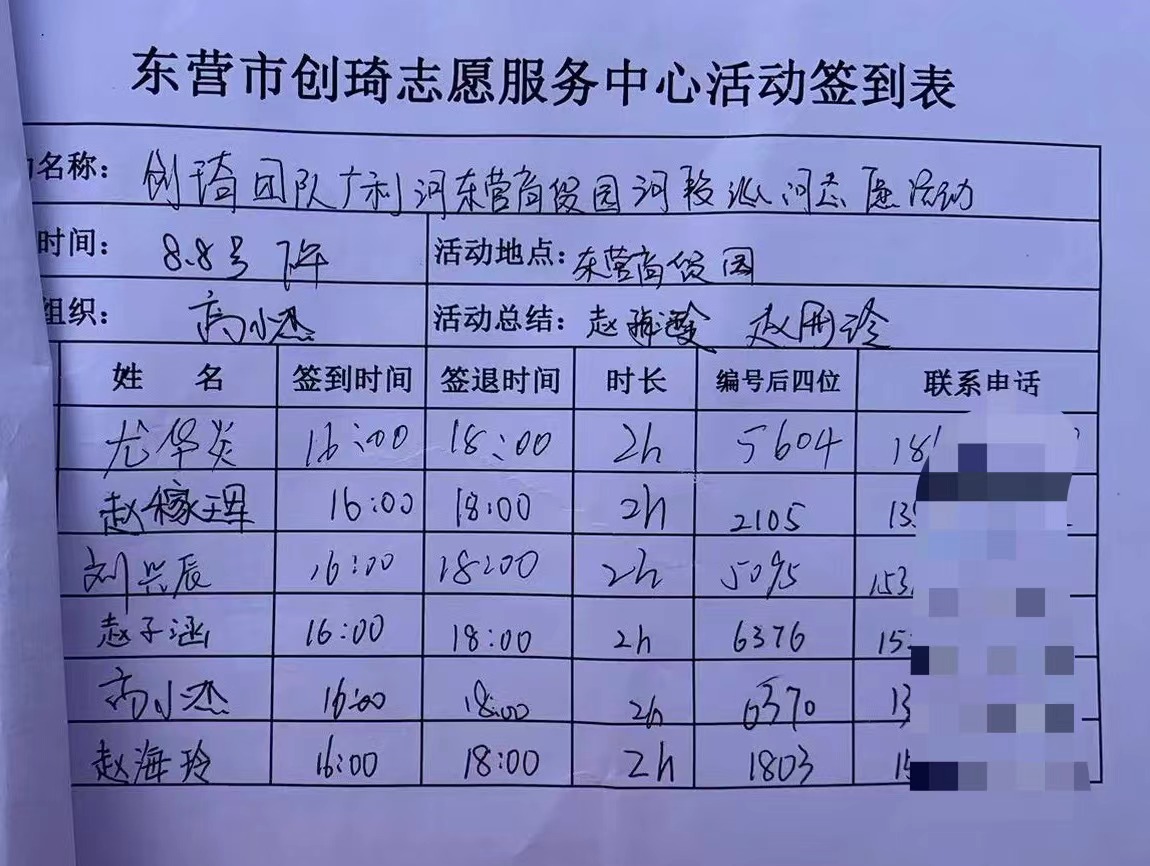 东营市创琦志愿服务中心活动签到表
名称: 创琦团队广利河东营商贸园河段巡河志愿活动
时间: 8.8号下午 活动地点: 东营商贸园
组织: 高小杰 活动总结: 赵 赵丽玲
姓 名 签到时间 签退时间 时长 编号后四位 联系电话
尤华炎 16:00 18:00 2h 5604 18
赵稼珲 16:00 18:00 2h 2105 13
刘兴辰 16:00 18:00 2h 5095 153
赵子涵 16:00 18:00 2h 6376 15
高小杰 16:00 18:00 2h 6370 13
赵海玲 16:00 18:00 2h 1803 15